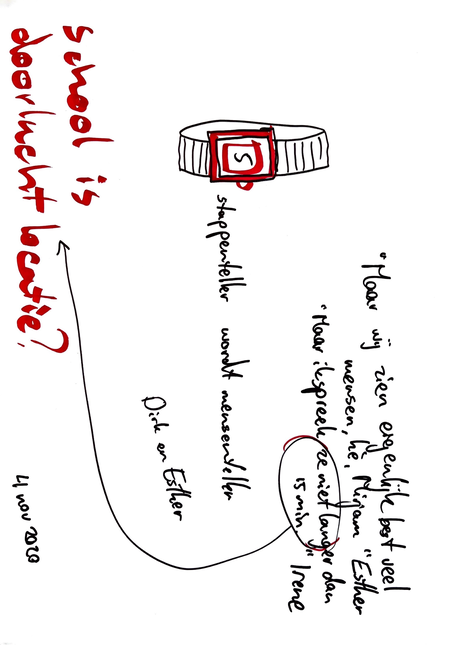 "Maar wij zien eigenlijk best veel
mensen, hè, Mirjam" Esther
"Maar ik spreek ze niet langer dan
15 min" Irene
S
stappenteller wordt mensenteller
Dirk en Esther
school is
doorlucht locatie?
4 nov 2020